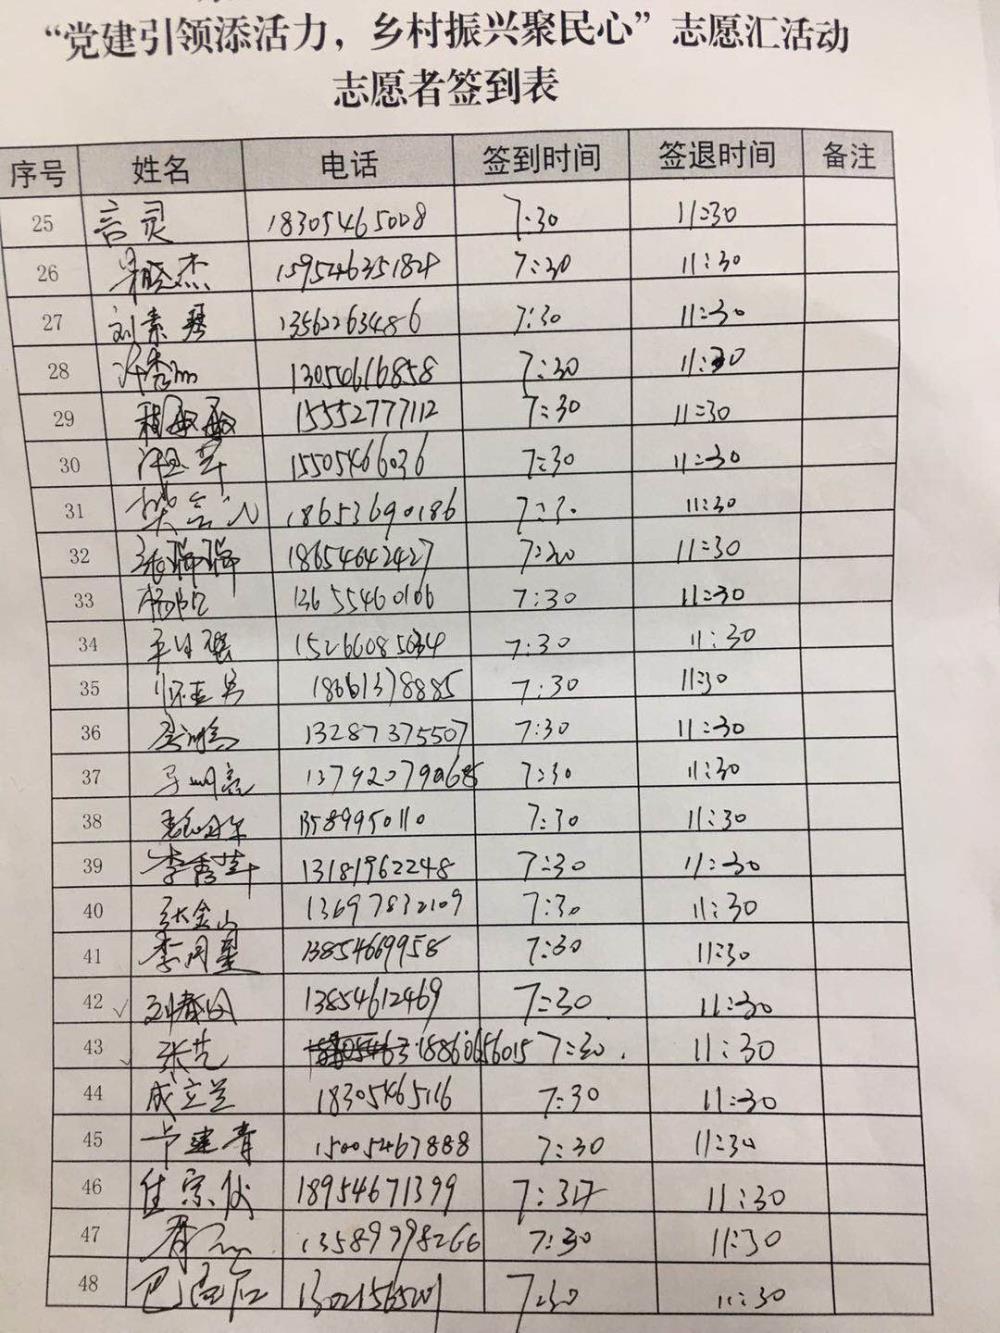 “党建引领添活力，乡村振兴聚民心”志愿汇活动
志愿者签到表
序号 姓名 电话 签到时间 签退时间 备注
25 言灵 18305465008 7:30 11:30
26 杰 15954635182 7:30 11:30
27 刘素琴 13562263486 7:30 11:30
28 许秀 13054616858 7:30 11:30
29 程敏敏 15552777112 7:30 11:30
30 15505466036 7:30 11:30
31 18653690186 7:30 11:30
32 张瑞瑞 18654642427 7:20 11:30
33 13655460106 7:30 11:30
34 7:30 11:30
35 18661378885 7:30 11:30
36 13287375507 7:30 11:30
37 7:30 11:30
38 13589950110 7:30 11:30
39 李秀华 13181962248 7:30 11:30
40 张金山 13697832109 7:30 11:30
41 李同星 13854669958 7:30 11:30
42 刘春田 13854612469 7:30 11:30
43 张艺 18860656015 7:30 11:30
44 成立兰 18305465116 7:30 11:30
45 卞建青 15005467888 7:30 11:30
46 任宗 18954671399 7:317 11:30
47 13589998266 7:30 11:30
48 巴 7:30 11:30